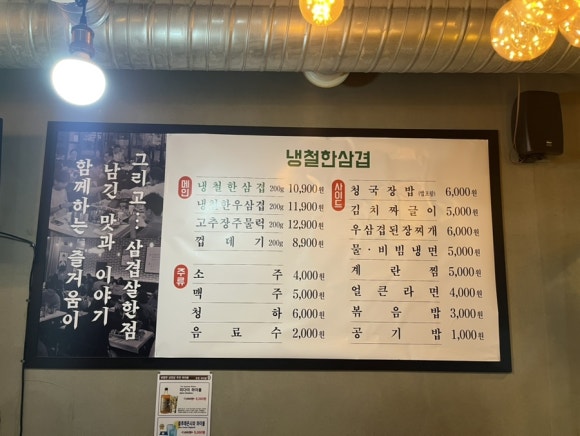 그리고... 삼겹살한점
남긴 맛과 이야기
함께하는 즐거움이
냉철한삼겹
메인
냉철한삼겹 200g 10,900원
냉철한우삼겹 200g 11,900원
고추장주물럭 200g 12,900원
껍데기 200g 8,900원
주류
소주 4,000원
맥주 5,000원
청하 6,000원
음료수 2,000원
사이드
청국장밥 6,000원
김치짜글이 5,000원
우삼겹된장찌개 6,000원
물·비빔냉면 5,000원
계란찜 5,000원
얼큰라면 4,000원
볶음밥 3,000원
공기밥 1,000원